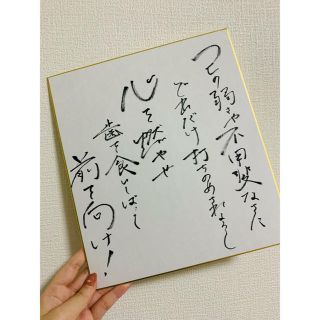 己の弱さや不甲斐なさに
どれだけ打ちのめされようと
心を燃やせ
歯を食いしばって
前を向け!